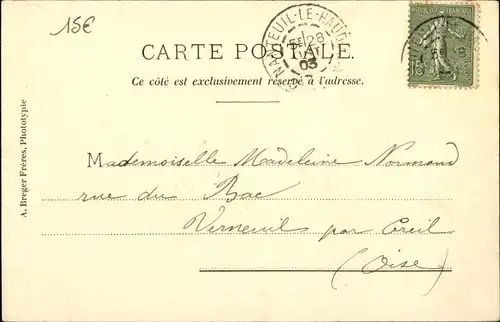 15€
CARTE POSTALE.
Ce côté est exclusivement réservé à l'adresse.
NANTEUIL-LE-HAUD
28
03
RÉPUBLIQUE FRANÇAISE
15
A. Breger Frères, Phototypie
Mademoiselle Madeleine Normand
rue du Bac
Verneuil par Creil
(Oise)